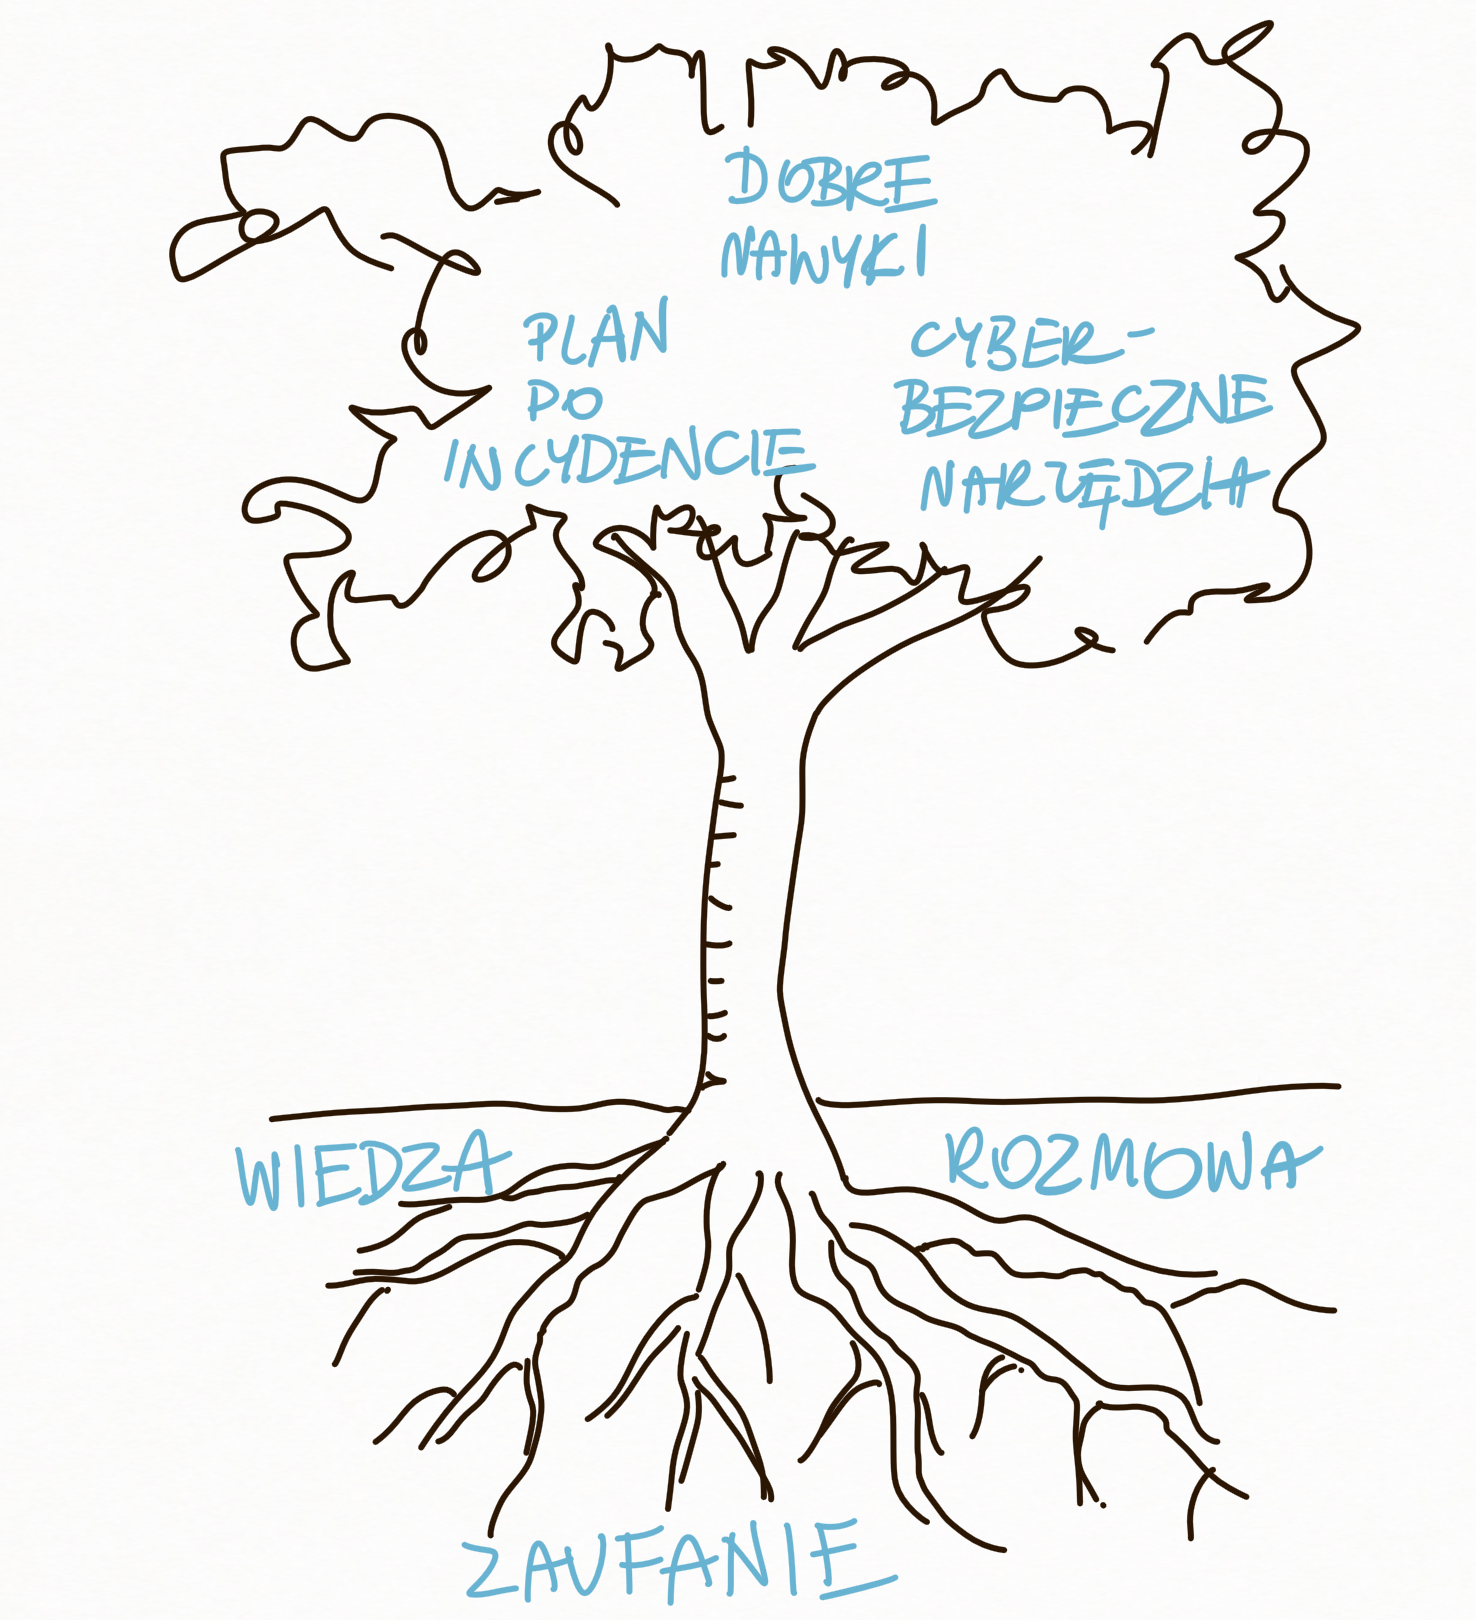 DOBRE
NAWYKI
PLAN
PO
INCYDENCIE
CYBER-
BEZPIECZNE
NARZĘDZIA
WIEDZA
ROZMOWA
ZAUFANIE